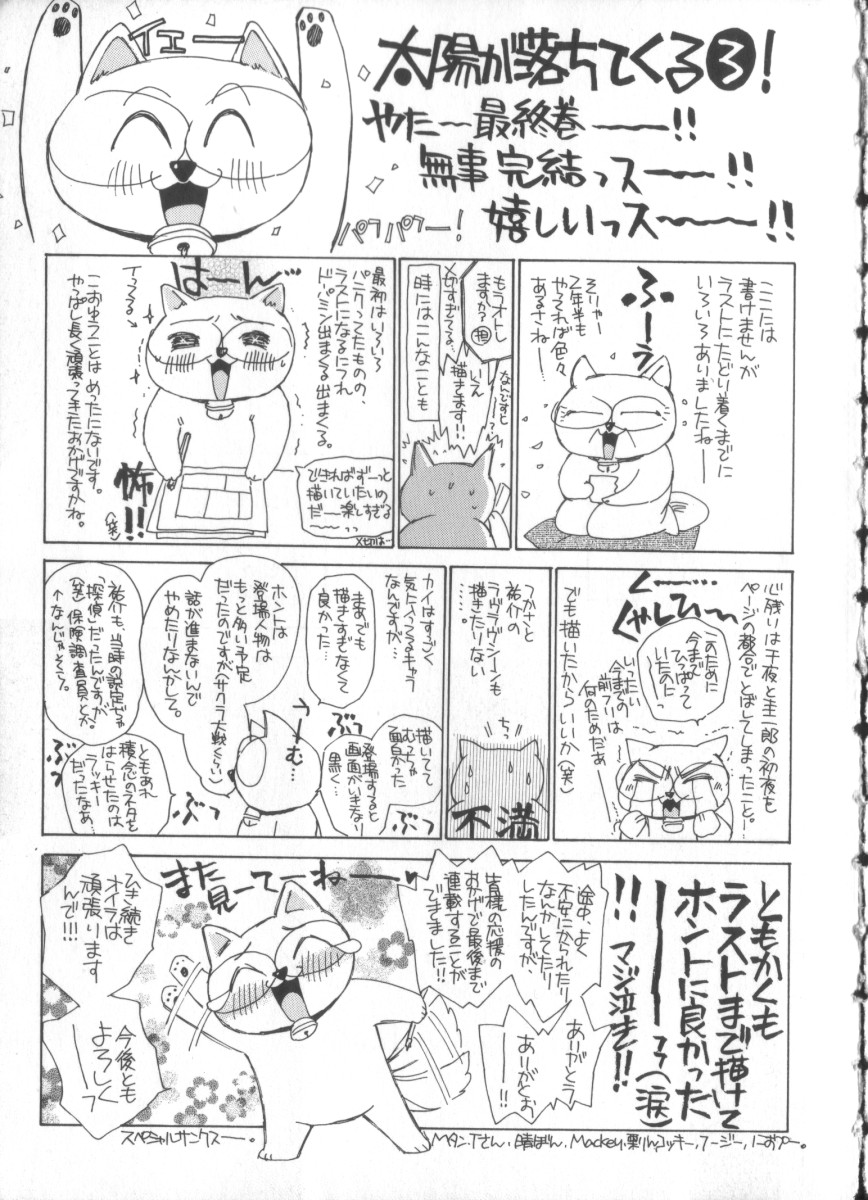 イエー
太陽が落ちてくる③!
やたー最終巻ーーー!!
無事完結っスーー!!
嬉しいっスーーー!!
パフパフー!
ここには
書けませんが
ラストにたどり着くまでに
いろいろありましたねー
ふーう
そりゃー
2年半も
やってれば色々
あるさねー
もうオトし
ますか?
担
〆切すぎてる…
なんですとー?
いえ
描きます!!
時にはこんなことも
最初はいろいろ
パニクってたものの、
ラストになるにつれ
ドーパミン出まくる出まくる。
はーん
できればずーっと
描いていたいの
だー楽しすぎる
〆切はー
怖!!
イってる→
こおゆうことはめったにないです。
やっぱし長く頑張ってきたおかげですかね。
(笑)
心残りは千夜と圭一郎の初夜も
ページの都合でとばしてしまったこと。
くー…
くやしひー
このために
今まで
ひっぱって
いたのにっ
いったい
今までの
前フリは
何のためだぁー
でも描いたからいいか(笑)
つかさと
祐介の
ラヴラヴシーンも
描きたりない
……。
ちっ
不満
カイはすごく
気に入ってるキャラ
なんですが…
まあでも
描きすぎなくて
良かった…
描いてて
むっちゃ
面白かった
登場すると
画面がいきなり
黒く…
うーむ…
ぶつ
ぶつ
ホントは
登場人物は
もっと多い予定
だったのですが(サクラ大戦くらい)
話が進まないんで
やめたりなんかして。
祐介も、当時の設定じゃ
「探偵」だったんですが
(笑)保険調査員とか。
↑なんじゃそら。
ともあれ
積念のネタを
はらせたのは
ラッキー
だったなぁ…
ぶつ
ぶつ
ともかくも
ラストまで描けて
ホントに良かった
ーーーっ(涙)
!!マジ泣き!!
途中、よく
不安になったり
なんかしてたり
したんですが、
皆様の応援の
おかげで最後まで
連載することが
できました!!
ありがとう
ー!!
ありがとお
ー!!
また
見ーてーねー
ひき続き
オイラは
頑張ります
んで!!!
今後とも
よろしく
ーっ
スペシャルサンクスー。
Mタン、Tさん、晴ぼん、Mackey、栗りん、コッキー、フージー、におぷー。